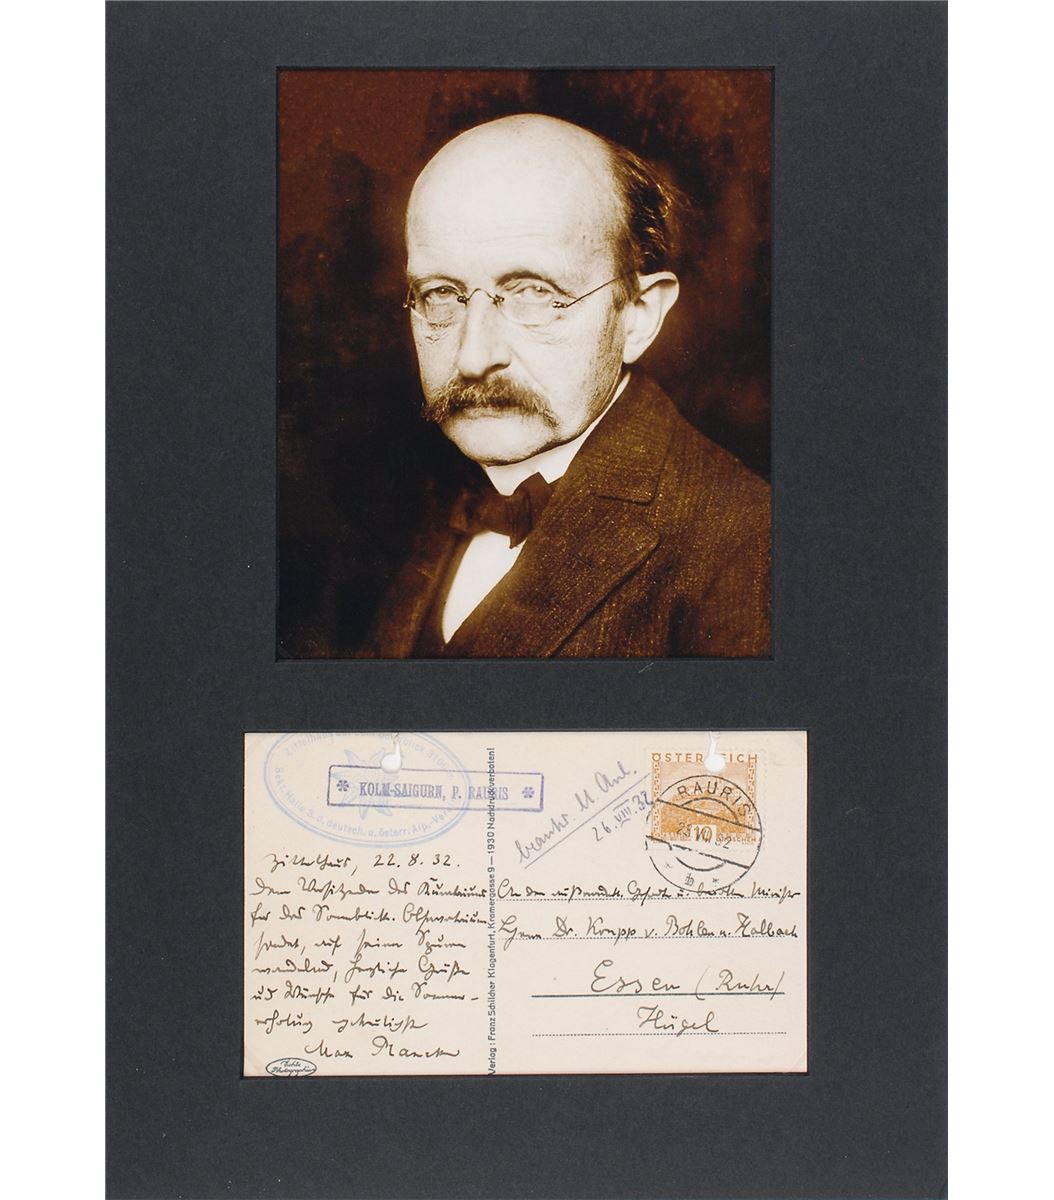 Zittelhaus 3106
Sekt. Halle a. d. deutsch. u. österr. Alp.-Vereins
* KOLM-SAIGURN, P. RAURIS *
Zittelhaus, 22. 8. 32.
Dem Vorsitzenden des Kuratoriums
für das Sonnblick-Observatorium
sendet, auf seinen Spuren
wandelnd, herzliche Grüße
und Wünsche für die Sommer-
erholung
Max Planck
Echte Photographie
Verlag: Franz Schilcher Klagenfurt, Kramergasse 9 — 1930 Nachdruck verboten!
beantw. 
26.VIII.32
ÖSTERREICH
10
GROSCHEN
RAURIS
23. VIII 32
* b *
An den außerordentl. Gesandten u. bevollm. Minister
Herrn Dr. Krupp v. Bohlen u. Halbach
Essen (Ruhr)
Hügel